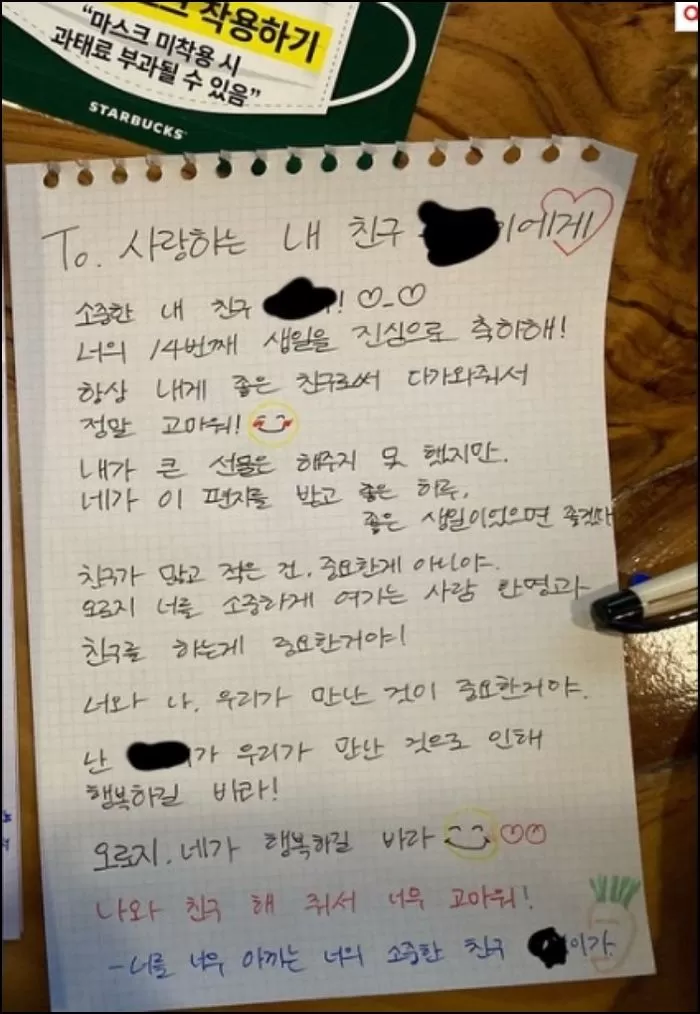 착용하기
“마스크 미착용 시
과태료 부과될 수 있음”
STARBUCKS
To. 사랑하는 내 친구 이에게
소중한 내 친구 ! ♡_♡
너의 14번째 생일을 진심으로 축하해!
항상 내게 좋은 친구로써 다가와줘서
정말 고마워!
내가 큰 선물은 해주지 못 했지만.
네가 이 편지를 받고 좋은 하루,
좋은 생일이었으면 좋겠다
친구가 많고 적은 건, 중요한게 아니야.
오로지 너를 소중하게 여기는 사람 한명과
친구를 하는게 중요한거야!
너와 나, 우리가 만난 것이 중요한거야.
난 가 우리가 만난 것으로 인해
행복하길 바라!
오로지, 네가 행복하길 바라 ♡♡
나와 친구 해 줘서 너무 고마워!
-너를 너무 아끼는 너의 소중한 친구 이가.